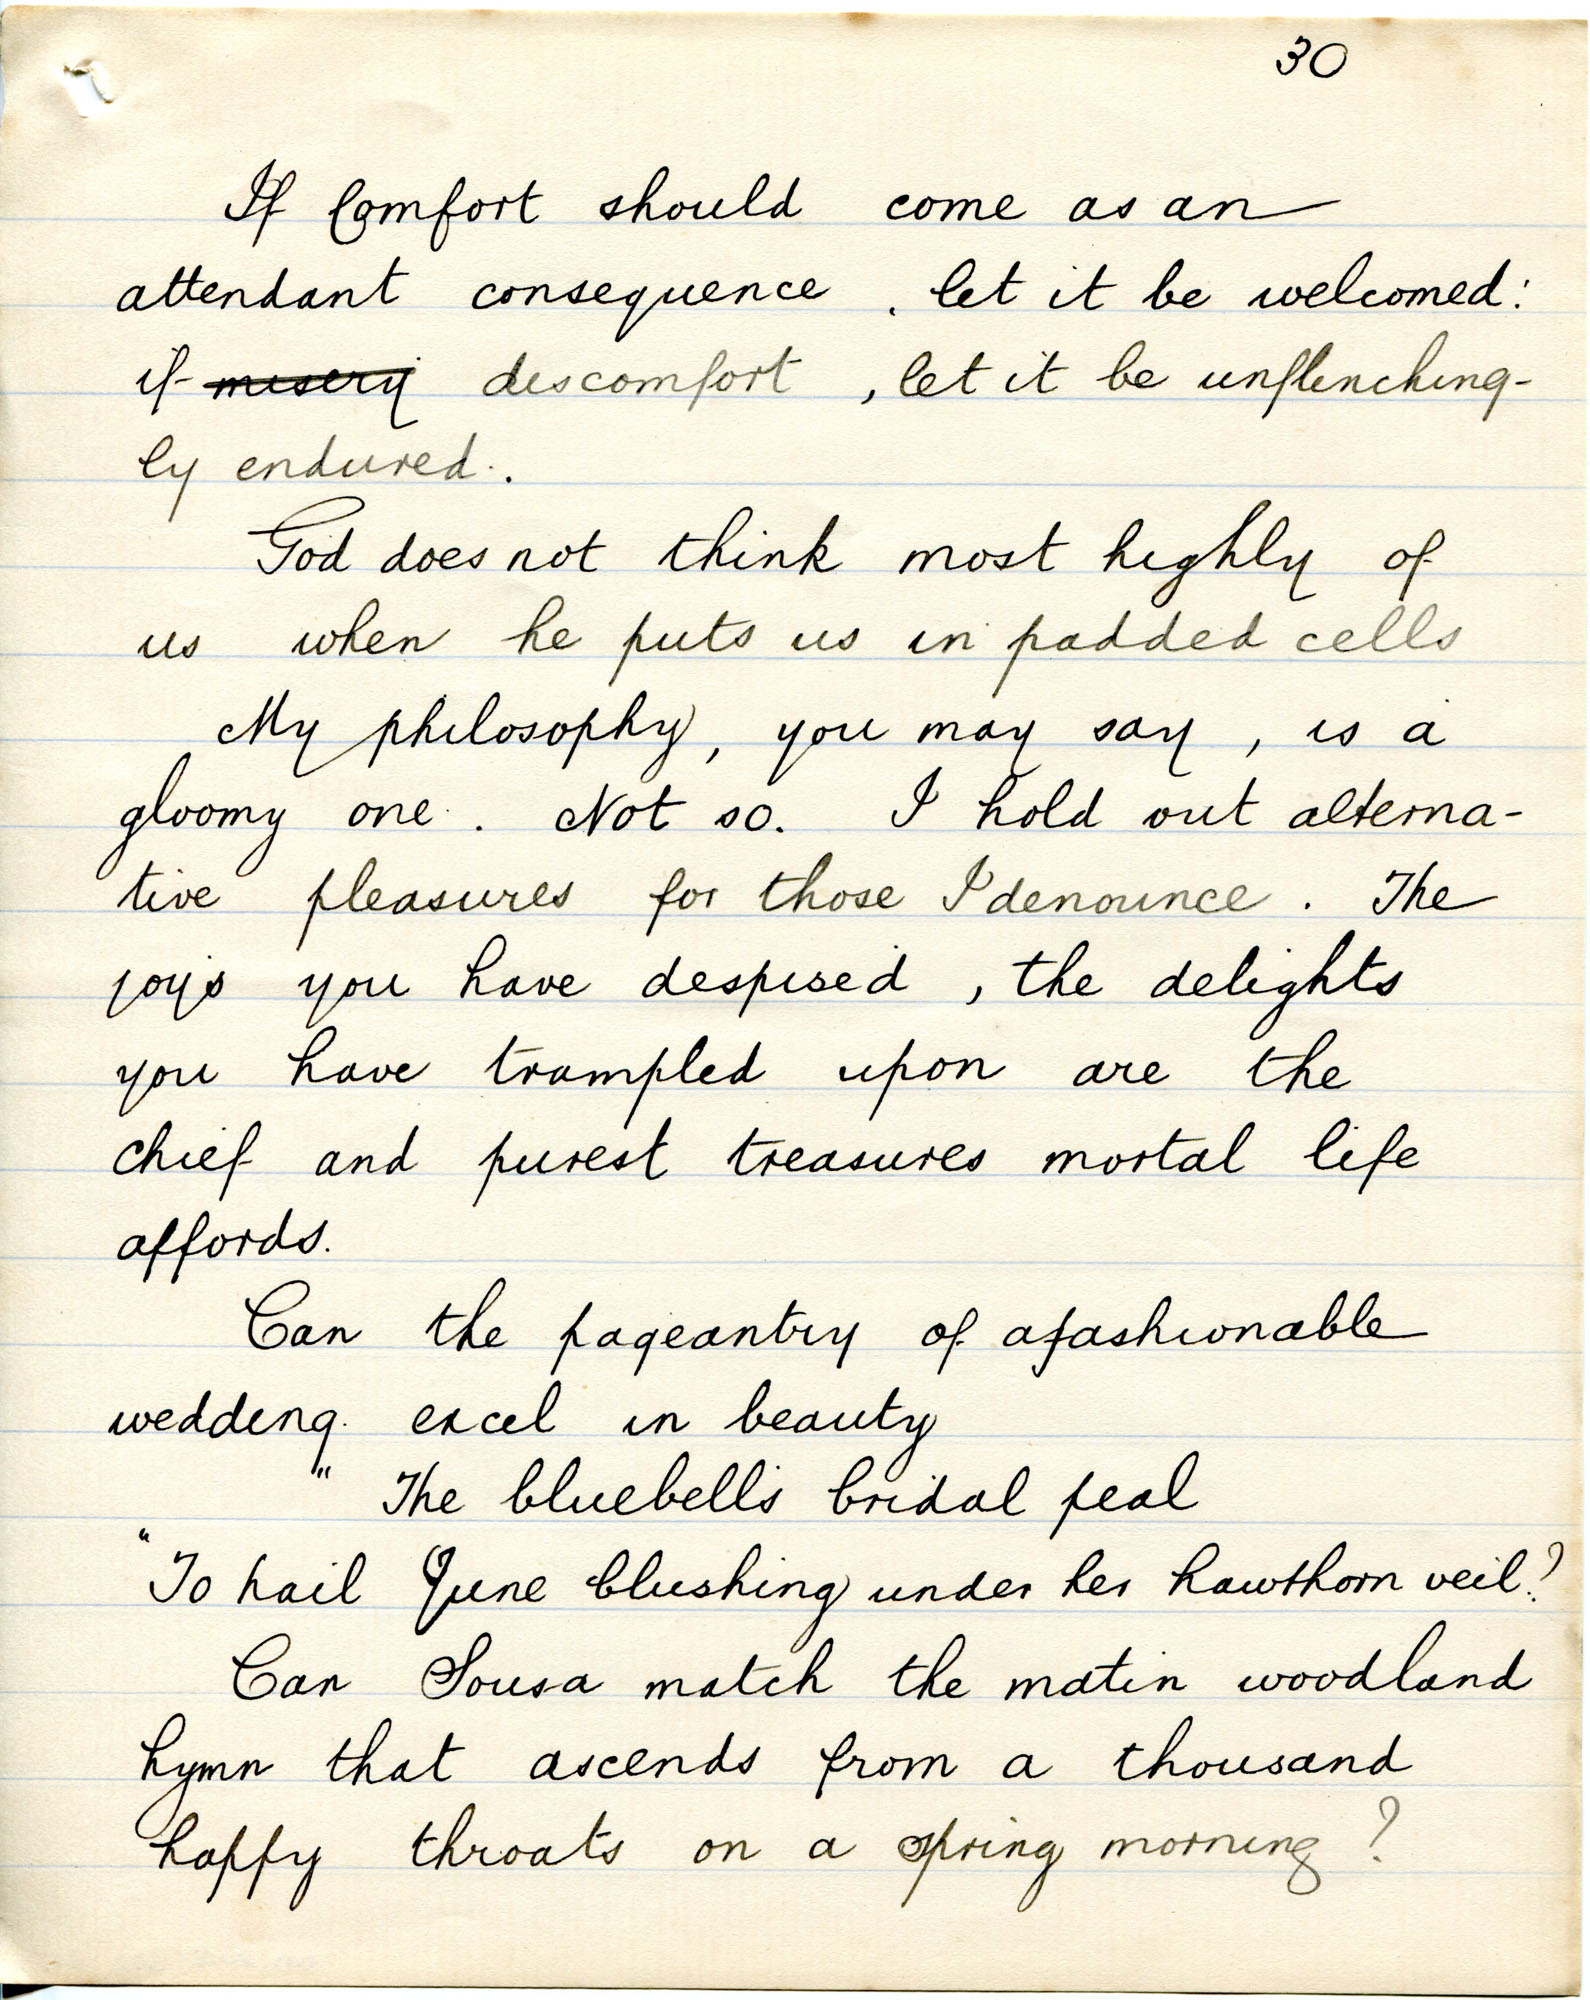 30
If Comfort should come as an
attendant consequence , let it be welcomed:
if misery discomfort , let it be unflinching-
ly endured.
God does not think most highly of
us when he puts us in padded cells
My philosophy, you may say, is a
gloomy one. Not so. I hold out alterna-
tive pleasures for those I denounce. The
joys you have despised, the delights
you have trampled upon are the
chief and purest treasures mortal life
affords.
Can the pageantry of a fashionable
wedding excel in beauty
" The bluebells bridal peal
"To hail June blushing under her hawthorn veil?
Can Sousa match the matin woodland
hymn that ascends from a thousand
happy throats on a spring morning?